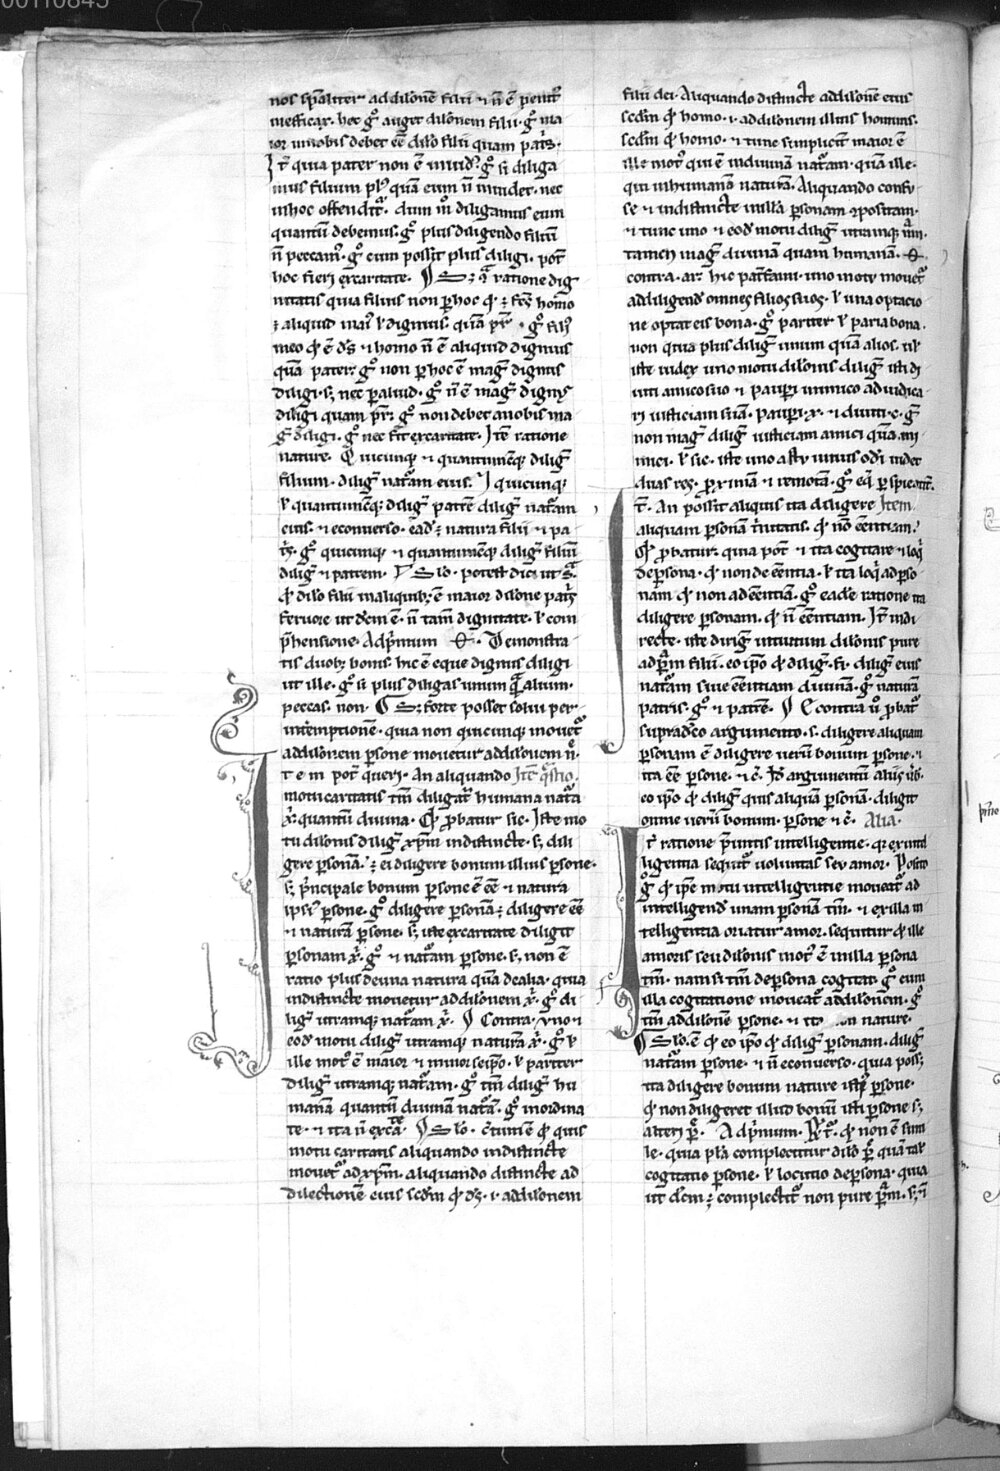 00110845
nos spāliter ad dilōnē filii ⁊ n̄ ē penit᷑
inefficax. hec gͦ auget dilōnem filii. gͦ ma
ior in nobis debet eē dilō filii quam pat̄s.
It̄ quia pater non ē inuid᷒. gͦ si diliga
mus filium pl᷒ quā eum n̄ inuidet. nec
in hoc offendit᷑. dum m̊ diligamus eum
quantū debemus. gͦ plus diligendo filiū
n̄ peccam᷒. gͦ eum possit plus diligi. pot̄
hoc fieri ex caritate. ¶ S; qͣ ratione dig
nitatis quia filius non ꝑ hoc ꝙ ē homo
maī l̓ dignius. quā pr̄. gͦ fili᷒
meo ꝙ ē d̄s ⁊ homo n̄ ē aliquid dignius
quā pater. gͦ non ꝑ hoc ē mag̅ dignus
diligi. s; nec ꝑ aliud. gͦ n̄ ē mag̅ dign᷒
diligi quam pr̄. gͦ non debet a nobis ma
g̅ diligi. gͦ nec fit ex caritate. Itē ratione
nature. Quicunqꝫ ⁊ quantumcūqꝫ dilig̅
filium. dilig̅ nat᷑am eius. quicunqꝫ
l̓ quantumcūqꝫ dilig̅ patrē dilig̅ nat᷑am
eius. ⁊ econuerso. ead̄ ē natura filii ⁊ pa
t̄s. gͦ quicunqꝫ ⁊ quantumcūqꝫ dilig̅ filiū
dilig̅ ⁊ patrem. Slo. potest dici ut sͣ.
ꝙ dilō filii in aliquib; ē maior dilōne pat̄s
feruore ut dcm̄ ē. n̄ tam̄ dignitate. l̓ com
p̄hensione. Ad p̄mum Demonstra
tis duob; bonis. hic ē eque dignus diligi
ut ille. gͦ si plus diligas unum qͣ alium.
peccas. non. ¶ S; forte posset solui per
int̄emptionē. quia non quicunqꝫ mouet᷑
ad dilōnem ꝑsone mouetur ad dilōnem n̄.
Item pot̄ queri. An aliquando Itē q̄stio.
motu caritatis tm̄ diligat᷑ humana nat᷑a
x̄ quantū diuina. Ꝙ probatur sic. Iste mo
tu dilōnis dilig̅ xp̄m indistincte. s; dili
gere ꝑsonā. ē ei diligere bonum illius ꝑsone.
s; p̄ncipale bonum ꝑsone ē eē ⁊ natura
ipsi᷒ ꝑsone. gͦ diligere ꝑsonā ē diligere eē
⁊ naturā ꝑsone. s; iste ex caritate diligit
ꝑsonam x̄. gͦ ⁊ nat᷑am ꝑsone. s; non ē
ratio plus de una natura quā de alia. quia
indistincte mouetur ad dilōnem x̄. gͦ di
lig̅ utramqꝫ nat᷑am x̄. ¶ Contra. uno ⁊
eod̄ motu dilig̅ utramqꝫ naturā x̄. gͦ l̓
ille mot᷒ ē maior ⁊ minor seip̄o. l̓ pariter
dilig̅ utramqꝫ nat᷑am. gͦ tm̄ dilig̅ hu
manā quantū diuinā nat᷑ā. gͦ inordina
te. ⁊ ita n̄ ex c̄a. ¶ Slo. ꝙ quis
motu caritatis aliquando indistincte
mouet᷑ ad xp̄m. aliquando distincte ad
dilectionē eius scd̄m ꝙ d᷒. i. ad dilōnem
filii dei. Aliquando distincte ad dilōnē eius
scd̄m ꝙ homo. i. ad dilōnem illius hominis.
scd̄m ꝙ homo. ⁊ tunc simplicit̄ maior ē
ille mot᷒ qui ē in diuinā nat᷑am. quā ille.
qui in humanā naturā. Aliquando confu
se ⁊ indistincte in illā ꝑsonam ꝯpositam.
⁊ tunc uno ⁊ eod̄ motu dilig̅ utramqꝫ nām.
tamen mag̅ diuinā quam humanā.
contra. ar. hic pat̄fami. uno motu mouet᷑
ad diligend̄ omnes filios suos. l̓ una optacio
ne optat eis bona. gͦ pariter l̓ paria bona.
non quia plus dilig̅ unum quā alios. ul̓
iste iudex uno motu dilōnis dilig̅ isti di
uiti amico suo ⁊ pauꝑi inimico adiudica
ri iusticiam suā. pauꝑi .x. ⁊ diuiti .c. gͦ
non mag̅ dilig̅ iusticiam amici quā ini
mici. l̓ sic. iste uno actu uisus od̄i uidet
duas res. ꝓximā ⁊ remotā. gͦ eq̄ ꝑspicue.
It̄. An possit aliquis ita diligere Item.
aliquam ꝑsonā t̄nitatis. ꝙ nō eēntiam.
Ꝙ probatur. quia pot̄ ⁊ ita cogitare ⁊ loq̄
de ꝑsona. ꝙ non de eēntia. l̓ ita loq̄ ad ꝑso
nam ꝙ non ad eēntiam. gͦ eadē ratione ita
diligere ꝑsonam. ꝙ n̄ eēntiam. It̄ indi
recte. iste dirig̅ intuitum dilōnis pure
ad ꝑs̄am filii. eo ip̄o ꝙ dilig̅ fi. dilig̅ eius
nat᷑am siue eēntiam diuinā. gͦ naturā
patris. gͦ ⁊ patrē. ¶ E contra ū probat᷑
supradc̄o argumento. s. diligere aliquam
ꝑsonam ē diligere uerū bonum ꝑsone. ⁊
ita eē ꝑsone. ⁊ c̄. Id̄ argumentū aliis ūb.
eo ip̄o ꝙ dilig̅ quis aliquā ꝑsonā. diligit
omne uerū bonum. ꝑsone ⁊ c̄. Alia.
It̄ ratione p̄untis intelligentie. qꝫ ex inteł
ligentia sequit᷑ uoluntas seu amor. Posito
gͦ ꝙ ip̄e motu intelligentie moueat᷑ ad
intelligend̄ unam ꝑsonā tm̄. ⁊ ex illa in
telligentia oriatur amor. sequitur ꝙ ille
amoris seu dilōnis mot᷒ ē in illa ꝑsona
tm̄. nam si tm̄ de ꝑsona cogitat. gͦ cum
illa cogitatione moueat᷑ ad dilōnem. gͦ
tm̄ ad dilōnē ꝑsone. ⁊ nature.
¶ Slo. ē ꝙ eo ip̄o ꝙ dilig̅ ꝑsonam. dilig̅
nat᷑am ꝑsone. ⁊ n̄ econuerso. quia poss;
ita diligere bonum nature isti᷒ ꝑsone.
ꝙ non diligeret illud bonū isti ꝑsone s;
alteri ꝑ. Ad p̄mum. R̄t̄. ꝙ non ē simi
le. quia pl̄a complectitur dilō ꝑ. quā tal̓
cogitatio ꝑsone. l̓ locutio de ꝑsona. quia
ut dcm̄ ē complectit᷑ non pure ꝑs̄am. s; ⁊